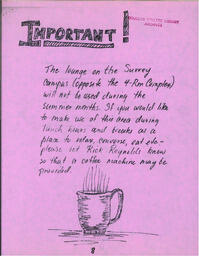 IMPORTANT!
The lounge on the Surrey
Campus (opposite the 4-Rm Complex)
will not be used during the
summer months. If you would like
to make use of this area during
lunch hours and breaks as a
place to relax, converse, eat etc-
please let Rick Reynolds know
so that a coffee machine may be
provided.
8